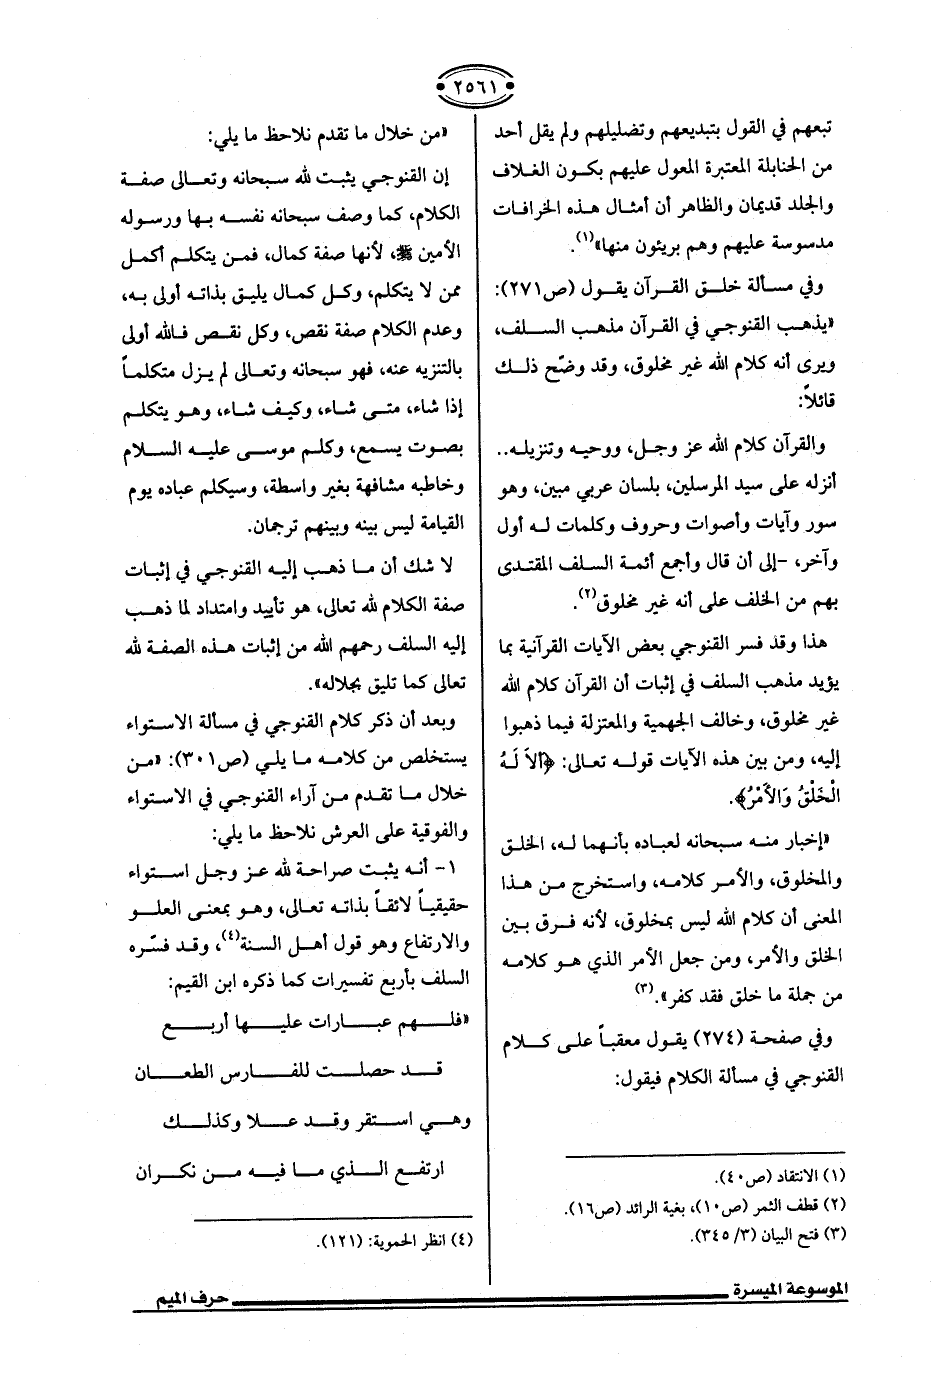 ٢٥٦١
تبعهم في القول بتبديعهم وتضليلهم ولم يقل أحد
من الحنابلة المعتبرة المعول عليهم بكون الغلاف
والجلد قديمان والظاهر أن أمثال هذه الخرافات
مدسوسة عليهم وهم بريئون منها»(١).
وفي مسألة خلق القرآن يقول (ص٢٧١):
«يذهب القنوجي في القرآن مذهب السلف،
ويرى أنه كلام الله غير مخلوق، وقد وضّح ذلك
قائلاً:
والقرآن كلام الله عز وجل، ووحيه وتنزيله..
أنزله على سيد المرسلين، بلسان عربي مبين، وهو
سور وآيات وأصوات وحروف وكلمات له أول
وآخر، -إلى أن قال وأجمع أئمة السلف المقتدى
بهم من الخلف على أنه غير مخلوق(٢).
هذا وقد فسر القنوجي بعض الآيات القرآنية بما
يؤيد مذهب السلف في إثبات أن القرآن كلام الله
غير مخلوق، وخالف الجهمية والمعتزلة فيما ذهبوا
إليه، ومن بين هذه الآيات قوله تعالى: ﴿أَلاَ لَهُ
الْخَلْقُ وَالأَمْرُ﴾.
«إخبار منه سبحانه لعباده بأنهما له، الخلق
والمخلوق، والأمر كلامه، واستخرج من هذا
المعنى أن كلام الله ليس بمخلوق، لأنه فرق بين
الخلق والأمر، ومن جعل الأمر الذي هو كلامه
من جملة ما خلق فقد كفر».(٣)
وفي صفحة (٢٧٤) يقول معقباً على كلام
القنوجي في مسألة الكلام فيقول:
(١) الانتقاد (ص٤٠).
(٢) قطف الثمر (ص١٠)، بغية الرائد (ص١٦).
(٣) فتح البيان (٣/ ٣٤٥).
«من خلال ما تقدم نلاحظ ما يلي:
إن القنوجي يثبت لله سبحانه وتعالى صفة
الكلام، كما وصف سبحانه نفسه بها ورسوله
الأمين ﷺ، لأنها صفة كمال، فمن يتكلم أكمل
ممن لا يتكلم، وكل كمال يليق بذاته أولى به،
وعدم الكلام صفة نقص، وكل نقص فالله أولى
بالتنزيه عنه، فهو سبحانه وتعالى لم يزل متكلماً
إذا شاء، متى شاء، وكيف شاء، وهو يتكلم
بصوت يسمع، وكلم موسى عليه السلام
وخاطبه مشافهة بغير واسطة، وسيكلم عباده يوم
القيامة ليس بينه وبينهم ترجمان.
لا شك أن ما ذهب إليه القنوجي في إثبات
صفة الكلام لله تعالى، هو تأييد وامتداد لما ذهب
إليه السلف رحمهم الله من إثبات هذه الصفة لله
تعالى كما تليق بجلاله».
وبعد أن ذكر كلام القنوجي في مسألة الاستواء
يستخلص من كلامه ما يلي (ص٣٠١): «من
خلال ما تقدم من آراء القنوجي في الاستواء
والفوقية على العرش نلاحظ ما يلي:
١- أنه يثبت صراحة لله عز وجل استواء
حقيقياً لائقاً بذاته تعالى، وهو بمعنى العلو
والارتفاع وهو قول أهل السنة(٤)، وقد فسّره
السلف بأربع تفسيرات كما ذكره ابن القيم:
«فلهم عبارات عليها أربع
قد حصلت للفارس الطعان
وهي استقر وقد علا وكذلك
ارتفع الذي ما فيه من نكران
(٤) انظر الحموية: (١٢١).
الموسوعة الميسرة
حرف الميم